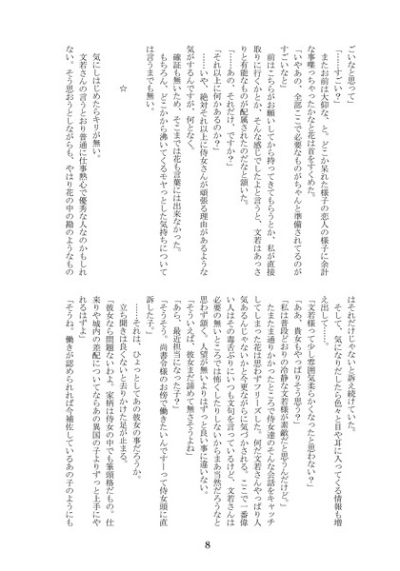 ごいなと思って」
「……すごい？」
またお前は大仰な、と、どこか呆れた様子の恋人の様子に余計
な事喋っちゃったかなと花は首をすくめた。
「いやあの、全部ここで必要なものがちゃんと準備されてるのが
すごいなと」
前はこちらがお願いしてから持ってきてもらうとか、私が直接
取りに行くかとか、そんな感じでしたよと言うと、文若はあっさ
りと有能なものが配属されたのだなと頷いた。
「……あの、それだけ、ですか？」
「それ以上に何かあるのか？」
……いや、絶対それ以上に侍女さんが頑張る理由があるような
気がするんですが、何となく。
確証も無いため、そこまでは花も言葉には出来なかった。
もちろん、どこかから沸いてくるモヤっとした気持ちについて
は言うまでも無い。
☆
気にしはじめたらキリが無い。
文若さんの言うとおり普通に仕事熱心で優秀な人なのかもしれ
ない。そう思おうとしながらも、やはり花の中の勘のようなもの
はそれだけじゃないと訴え続けていた。
そして、気になりだしたら色々と目や耳に入ってくる情報も増
え出して……。
「文若様って少し雰囲気柔らかくなったと思わない？」
「ああ、貴女もやっぱりそう思う？」
「私は普段どおりの冷静な文若様が素敵だと思うんだけど。」
たまたま通りかかったところで侍女達のそんな会話をキャッチ
してしまった花は思わずフリーズした。何だ文若さんやっぱり人
気あるんじゃないかと今更ながらに気づかされる。ここで一番偉
い人はその毒舌ぶりにいつも文句を言っているけど、文若さんは
必要の無いところでは怖くしたりしないからまあ当然だろうなと
思わず頷く。人望が無いよりはずっと良い事に違いない。
「そういえば、彼女まだ諦めて無さそうよね」
「あら、最近担当になった子？」
「そうそう、尚書令様のお傍で働きたいんですーって侍女頭に直
訴した子。」
……それは、ひょっとしてあの彼女の事だろうか。
立ち聞きは良くないと去りかけた足が止まる。
「彼女なら問題ないわよ。家柄は侍女の中でも筆頭格だもの。仕
来りや城内の差配についてならあの異国の子よりずっと上手にや
れるはずよ」
「そうね。働きが認められれば今補佐しているあの子のようにも
8